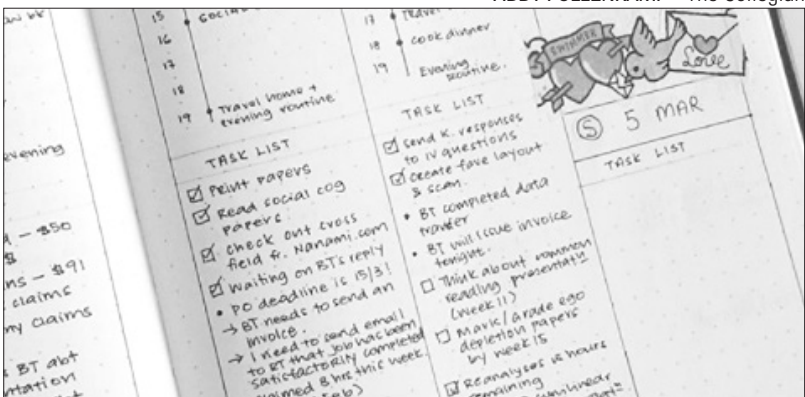 The Collegian
15
16
17
18
19
Travel home +
evening routine
TASK LIST
Print papers
Read social cog
papers
check out cross
field fr. Nanami.com
Waiting on BT's reply
PO deadline is 15/3!
→ BT needs to send an
invoice.
→ I need to send email
to BT that job has been
satisfactorily completed
8 hrs this week.
17
18
cook dinner
19
Evening
routine.
TASK LIST
Send K. responses
to IV questions
create fave layout
& scan.
BT completed data
BT will issue invoice
tonight.
Think about common
reading
(week 11)
Mark/Grade ego
depletion papers
by week 15
Reanalyses 12 hours
remaining
Love
S 5 MAR
TASK LIST
evening
- $50
$
- $91
claims
claims
BT abt